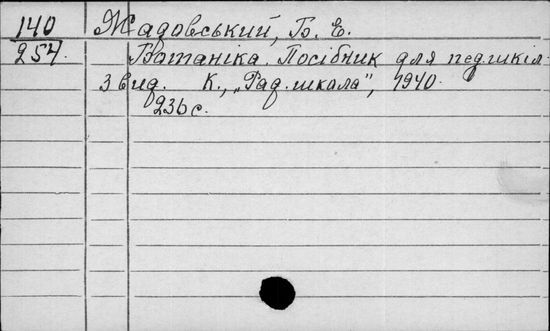 140 Жадовський, Б. Е.
254. Ботаніка. Посібник для пед.шкіл.
3 вид. К., „Рад.школа", 1940.
236 с.